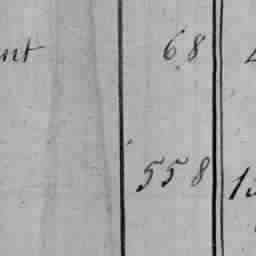 nt 68
558